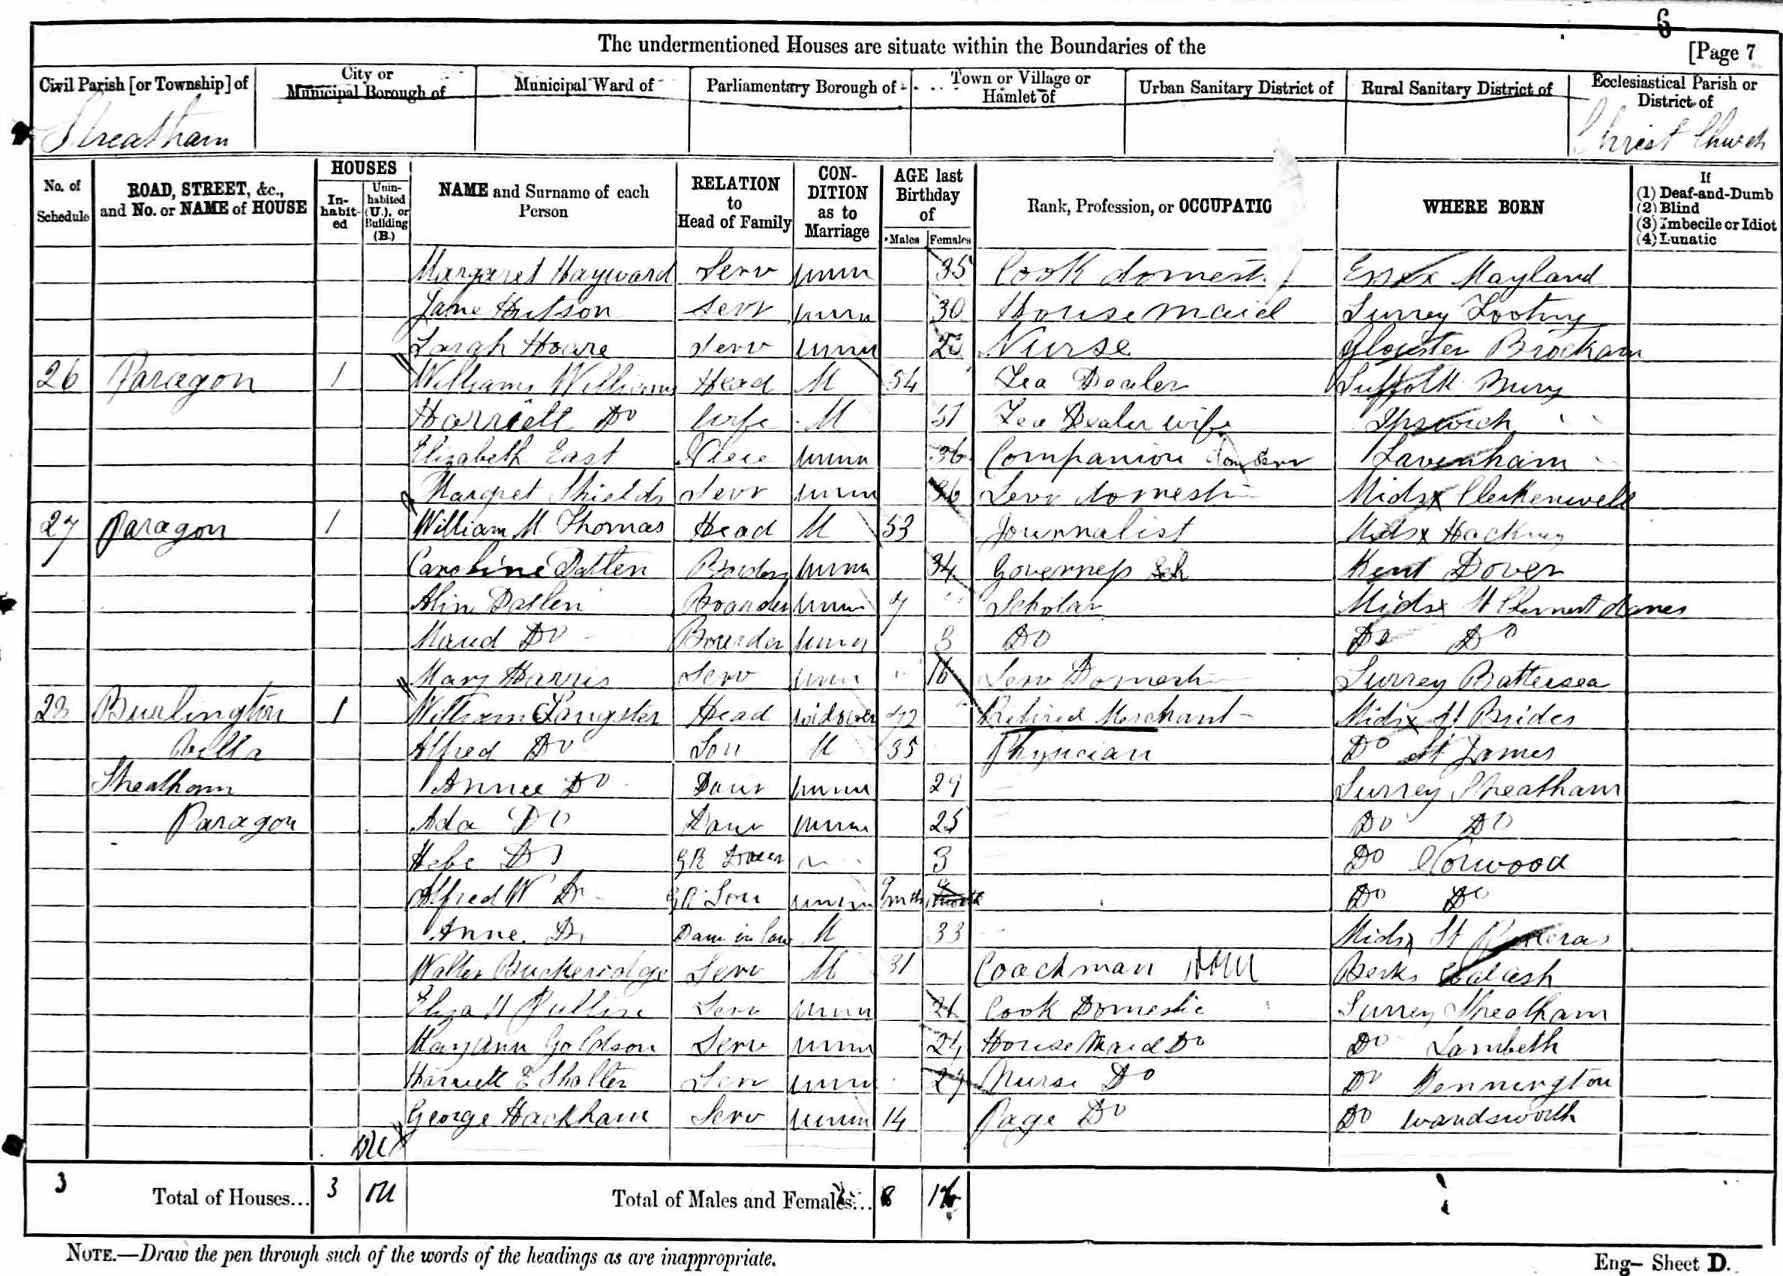 6
The undermentioned Houses are situate within the Boundaries of the
[Page 7
Civil Parish [or Township] of
City or Municipal Borough of
Municipal Ward of
Parliamentary Borough of
Town or Village or Hamlet of
Urban Sanitary District of
Rural Sanitary District of
Ecclesiastical Parish or District of
Streatham
Christ Church
No. of Schedule
ROAD, STREET, &c., and No. or NAME of HOUSE
HOUSES
In-habit-ed
Unin-habited (U.), or Building (B.)
NAME and Surname of each Person
RELATION to Head of Family
CON-DITION as to Marriage
AGE last Birthday of
Males
Females
Rank, Profession, or OCCUPATIO
WHERE BORN
If
(1) Deaf-and-Dumb
(2) Blind
(3) Imbecile or Idiot
(4) Lunatic
Margaret Hayward Serv unm 35 Cook domest Essex Mayland
Jane Hutson Serv unm 30 House maid Surrey Tooting
Sarah Hoare Serv unm 23 Nurse Glouster
26 Paragon 1 Williams Williams Head M 54 Tea Dealer Suffolk Bury
Harriett Do Wife M 51 Tea Dealer wife Ipswich
Elizabeth East Niece unm 36 Companion Dom Serv Lavenham
Margret Shields Serv unm 36 Serv domesti Midsx Clerkenwell
27 Paragon 1 William M Thomas Head M 53 Journalist Midsx Hackney
Caroline Dallen Border unm 34 Governess Sch Kent Dover
Dallen Boarder unm 7 Scholar Midsx St Clement danes
Maud Do Bourder unm 3 Do Do Do
Mary Harris Serv unm 16 Serv Domesti Surrey Battersea
23 Burlington 1 William Sangster Head widower 72 Retired Merchant Midsx St Brides
Villa Alfred Do Son M 35 Physician Do St James
Streatham Annee Do Daur unm 29 Surrey Streatham
Paragon Ada Do Daur unm 25 Do Do
Hebe Do GR Daur 3 Do Norwood
Alfred W Do GR Son unm 9 mths Do Do
Anne Do Daur in law M 33 Midsx St Pancras
Walter Buckeridge Serv M 31 Coachman Berks
Eliza H Pullin Serv unm 21 Cook Domestic Surrey Streatham
Mary Ann Goldson Serv unm 24 House Maid Do Do Lambeth
Harriett E Serv unm 27 Nurse Do Do Kennington
George Hackham Serv unm 14 Page Do Do Wandsworth
3 Total of Houses... 3
Total of Males and Females... 8 16
NOTE.—Draw the pen through such of the words of the headings as are inappropriate.
Eng— Sheet D.